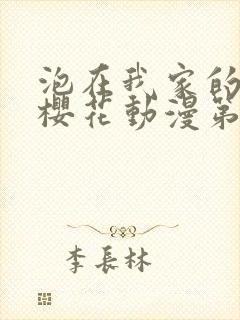 泡在我家的
櫻花動漫第
李長林